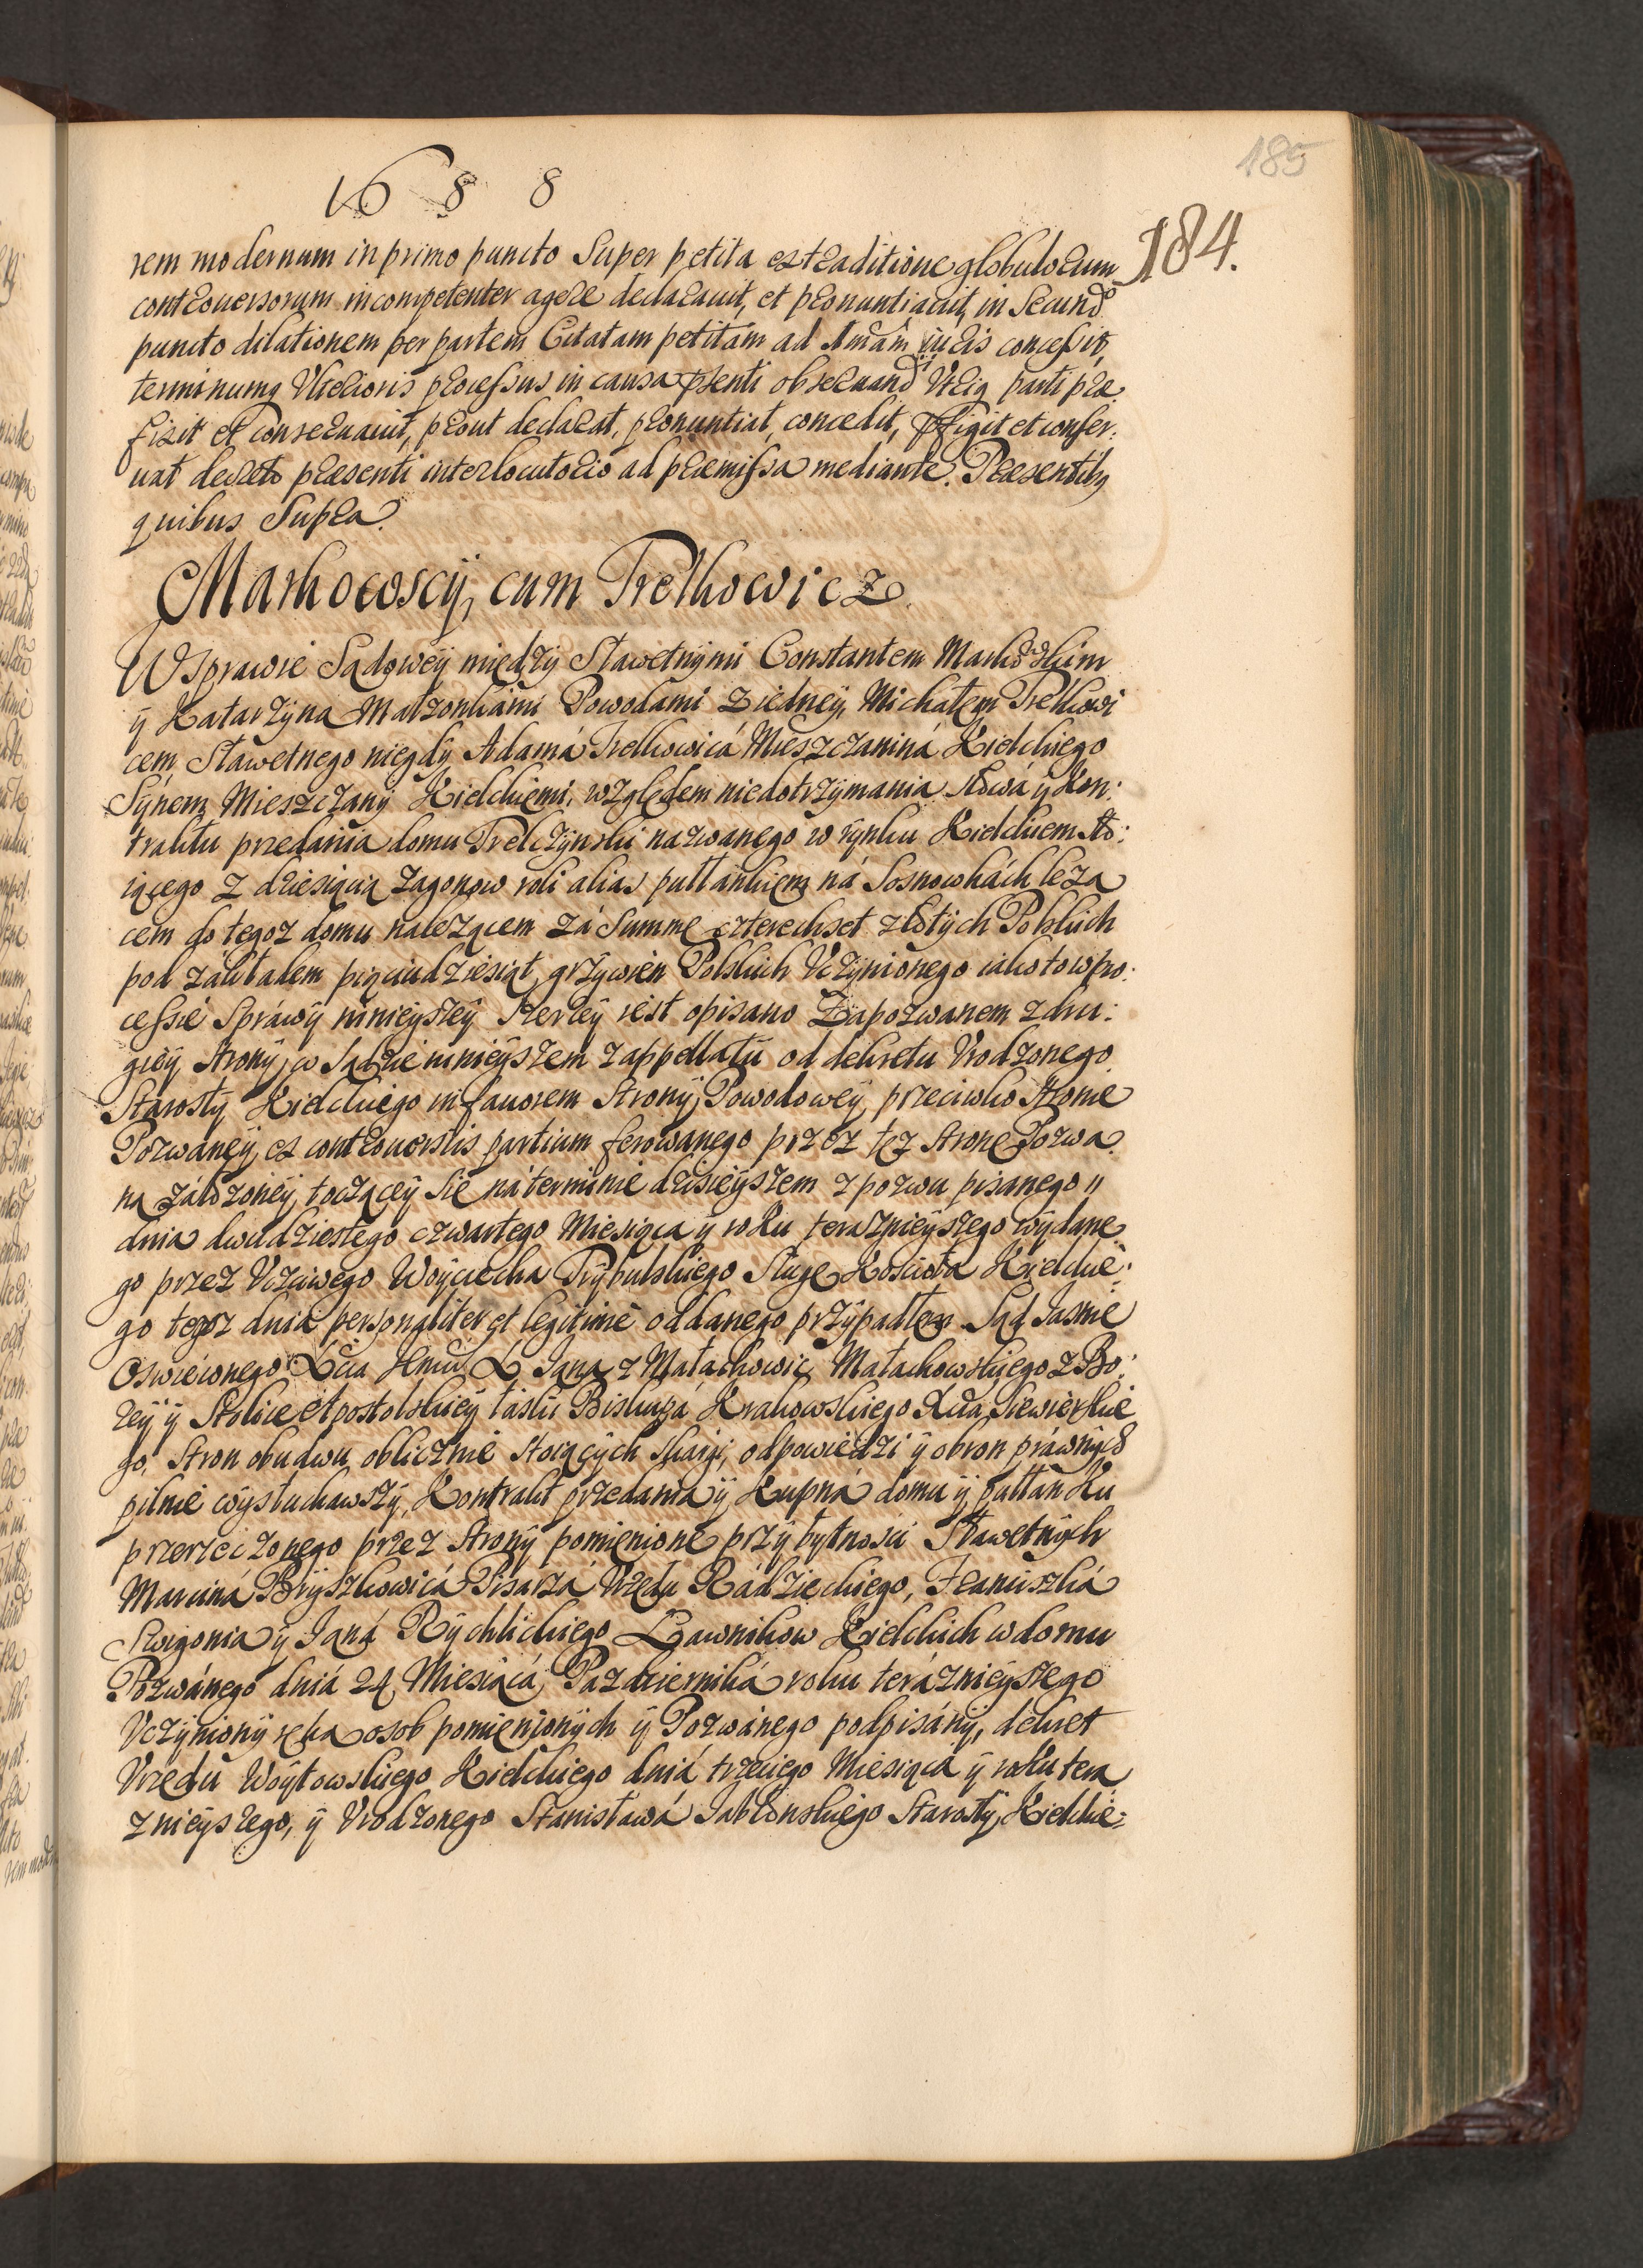 185
1688
184.
rem modernum in primo puncto super petita extraditione globulorum
controuersorum incompetenter agere declarauit, et pronuntiauit, in secundo
puncto dilationem per partem Citatam petitam ad Amam iuris concessit,
terminumq Vlterioris processus in causa psenti obseruand Vtriq parti prae
fixit et conseruauit, prout declarat, pronuntiat, concedit, pfigit et conser:
uat decreto praesenti interlocutorio ad praemissa mediante. Praesentibq
quibus supra.
Markowscy, cum Trelkowicz.
W sprawie Sądowey między Sławetnymi Constantem Markowskim
y Katarzyna Małzonkami Powodami z iedney, Michałem Trelkowi
cem Sławetnego niegdy Adamá Trelkowicá Mieszczaniná Kielckiego
Synem Mieszczany Kielckiemi, względem niedotrzymania słowá y Kon:
traktu przedania domu Trelczynski nazwanego w rynku Kielckiem sto:
iącego z dziesiącią zagonow roli alias pułłankiem ná Sosnowkách leza
cem do tegoz domu nalezącem zá Summe czterechset złotych Polskich
pod zakładem pięciudziesiąt grzywien Polskich Vczynionego iako to w pro:
cessie Spráwy ninieyszey szerzey iest opisano Zapozwanem z dru:
giey strony, w Sądzie ninieyszem z appellaty od dekretu Vrodzonego
Starosty Kielckiego in fauorem strony Powodowey przeciwko stronie
Pozwáney ex controuersiis partium ferowanego przez tęz strone Pozwa
ną záłozoney, toczącey sie ná terminie dzisieyszem z pozwu pisanego
dnia dwudziestego czwartego Miesiąca y roku terazniejszego wydane
go przez Vczciwego Woyciecha Prybulskiego Sługe Koscioła Kielckie:
go tegoz dnia personaliter et legitime oddanego przypadłem Sąd Jasnie
Oswieconego Xcia Jmci X Jana z Małachowic Małachowskiego z Bo:
zey y Stolice Apostolskiey łaski Biskupá Krakowskiego Xcia Siewierskie
go, stron obudwu oblicznie stoiących skargi, odpowiedzi y obron práwnych
pilnie wysłuchawszy, Kontrakt przedania y Kupná domu y pułłan Ku
przerzeczonego przez strony pomienione przy bytnosci Sławetnych
Marciná Bryszkowicá Pisarzá Vrzędu Rádzieckiego, Franciszká
Swigonia y Janá Rychlickiego Ławnikow Kielckich w domu
Pozwánego dniá 24 Miesiącá Pazdzierniká roku teráznieyszego
Vczyniony ręką osob pomienionych y Pozwánego podpisány, dekret
Vrzedu Woytowskiego Kielckiego dniá trzeciego Miesiąca y roku tera
znieyszego, y Vrodzonego Stanisławá Jabłonskiego Starosty Kielckie: